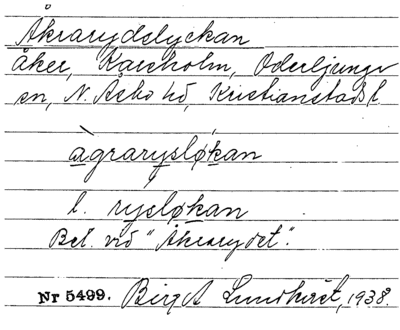 Åkrarydslyckan
åker, Karsholm, Oderljunga
sn, N. Åsbo hd, Kristianstads l
àgrarysløkan
l. rysløkan
Bel. vid "Åkrarydet".
Nr 5499. Birgit Lundkvist, 1938.